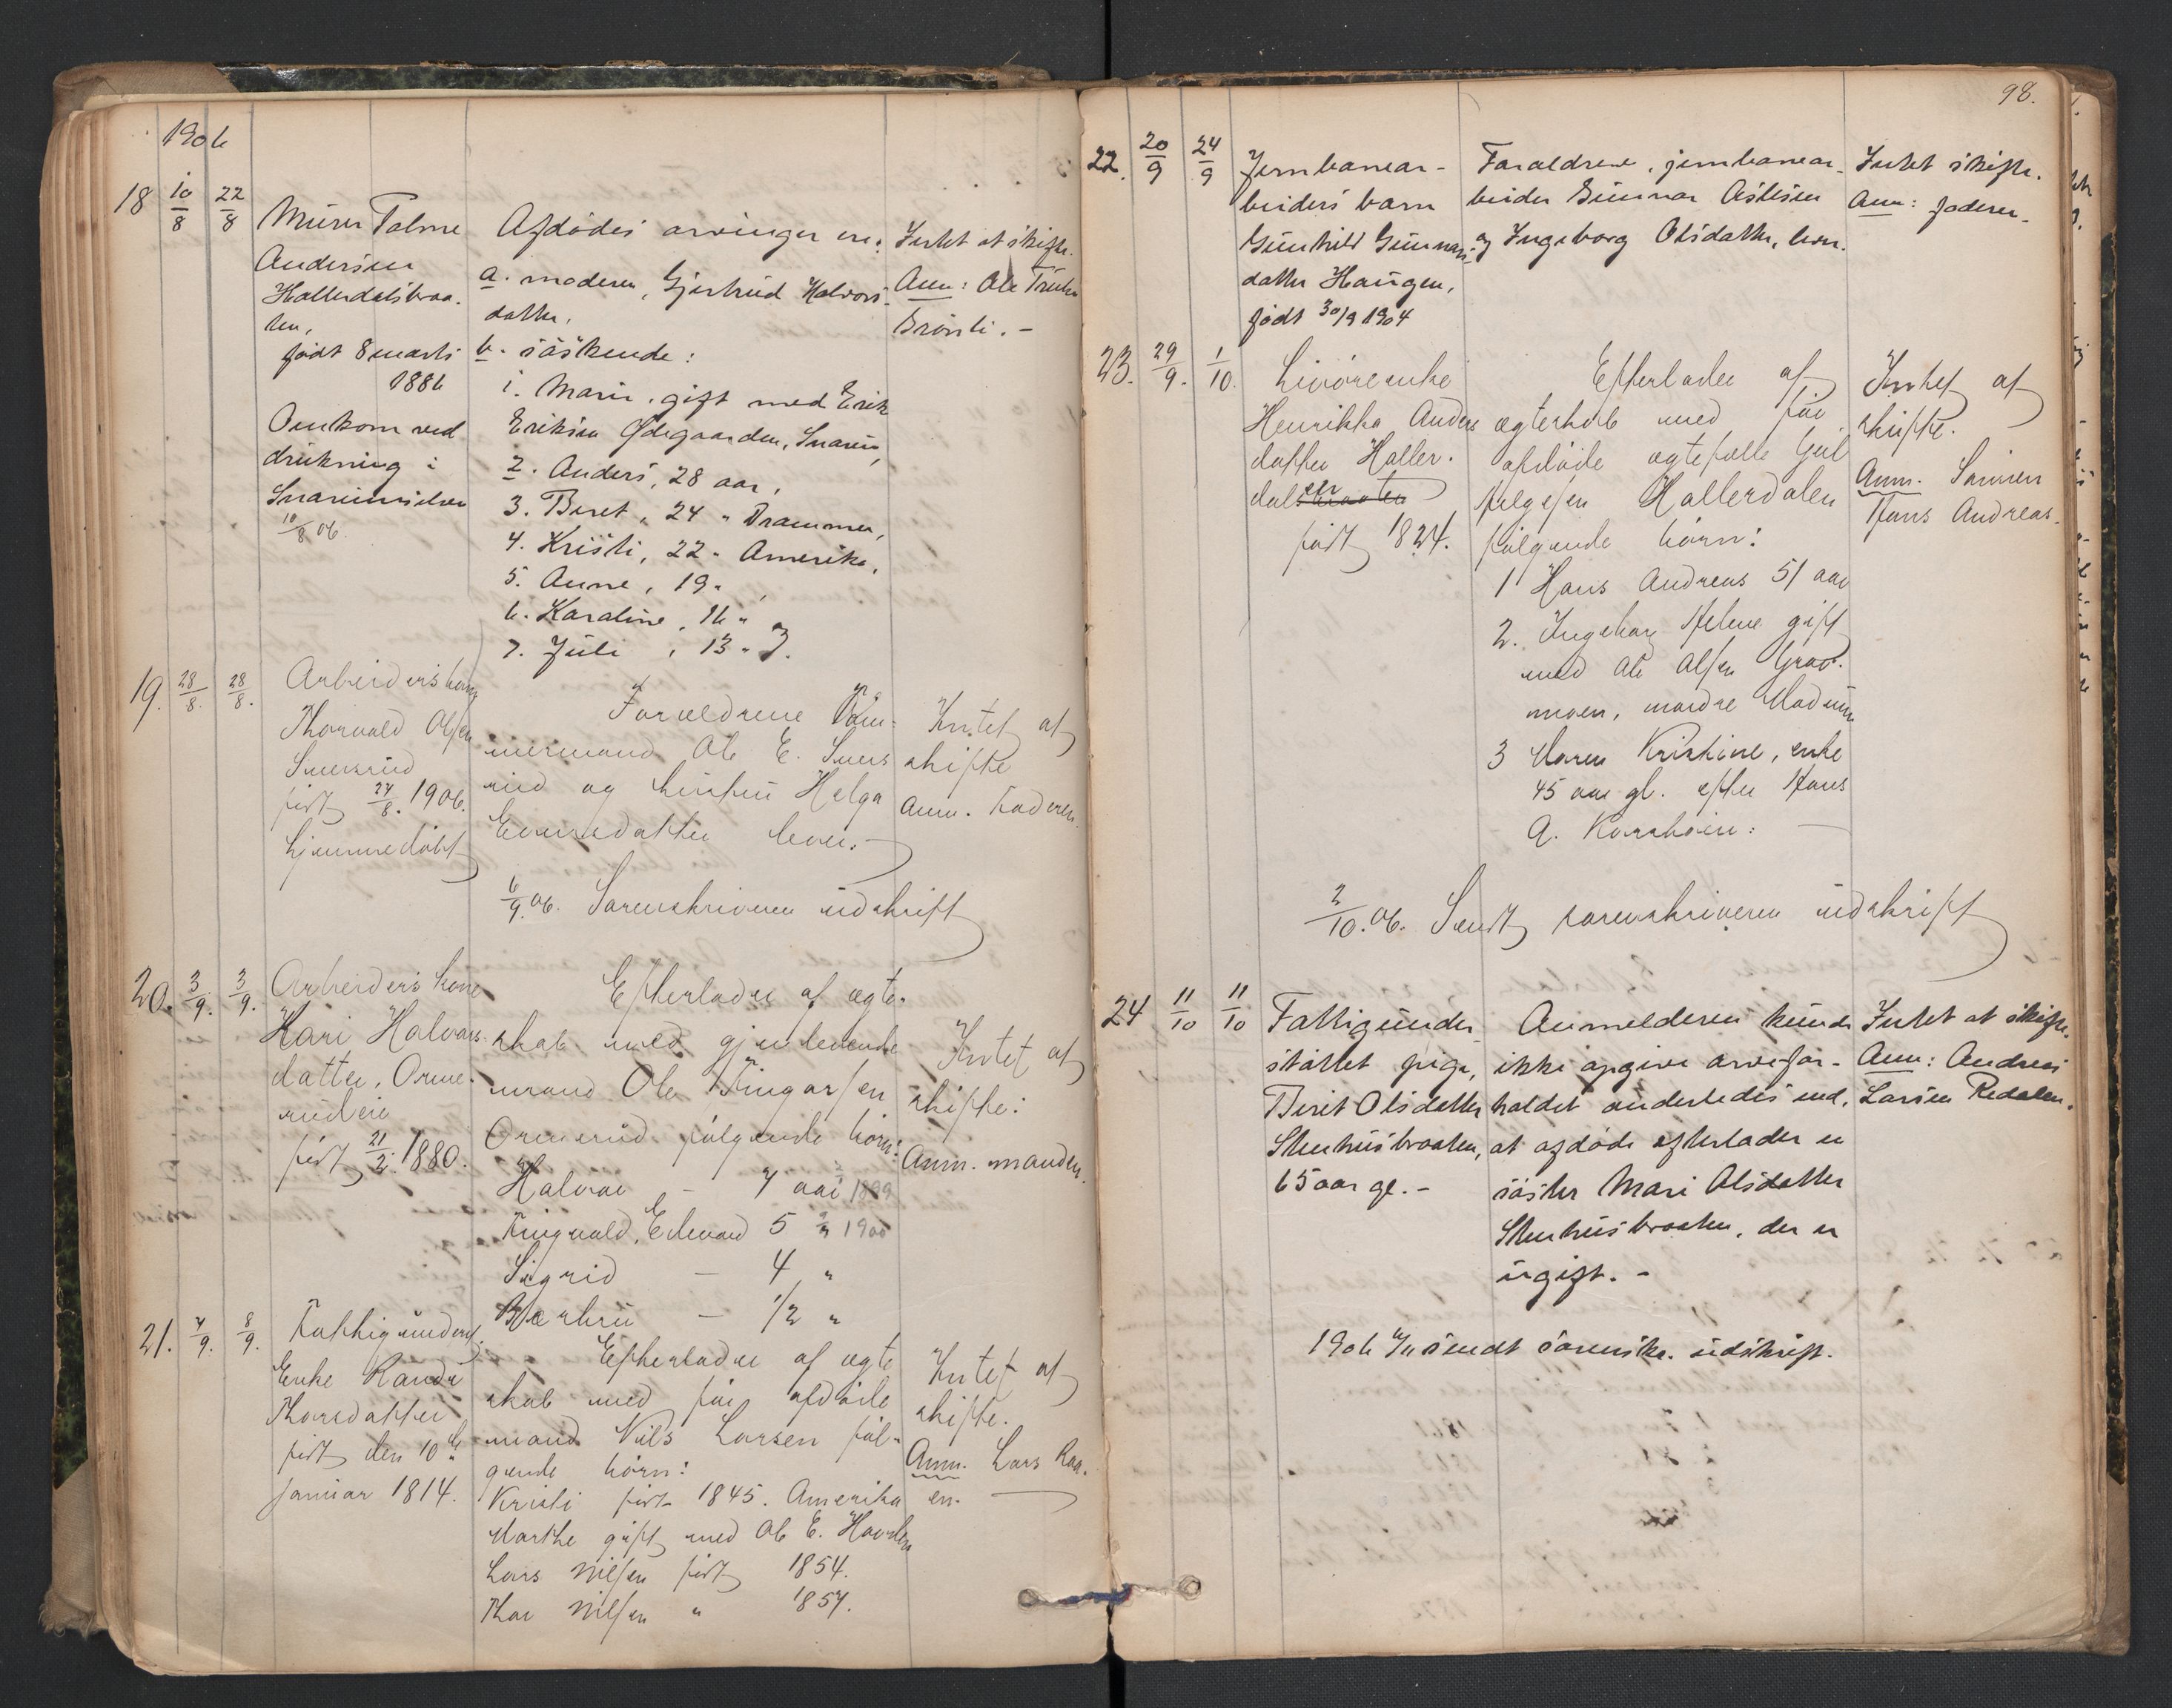 1906
18 10/8 22/8
Murer Palme
Andersen
Hallerdalsbraa-
ten,
født 8 marts
1886
Omkom ved
drukning i
Snarumselven
10/8 06.
Afdødes arvinger er:
a. moderen, Gjertrud Halvors-
datter,
b. søskende:
1. Marie, gift med Erik
Eriksen Ødegaarden, Snarum,
2. Anders, 28 aar,
3. Beret, 24 " Drammen,
4. Kristi, 22 " Amerika,
5. Anne, 19 "
6. Karoline, 16 "
7. Juli, 13 "
Intet at skifte.
Anm: Ole
19. 28/8. 28/8.
Arbeiders barn
Thorvald Olsen
født 24/8. 1906.
hjemmedøbt
Forældrene
Ole E.
rud og hustru Helga
datter lever.
Intet at
skifte
Anm. Faderen.
6/9.06. Sorenskriveren udskrift
20. 3/9. 3/9.
Arbeiders kone
Kari Halvors-
datter, Orme-
rudeie
født 21/2. 1880.
Efterlader af ægte-
skab med gjenlevende
mand Ole
Ormerud følgende børn:
Halvor - 7 aar 1899
Ringvald, Edvard 5 " 1900
Sigrid - 4 "
- 1/2 "
Intet at
skifte:
Anm. manden.
21. 7/9. 8/9.
Fattigunderst.
Enke Randi
Thorsdatter
født den 10de
Januar 1814.
Efterlader af ægte
skab med før afdøde
mand Nils Larsen føl-
gende børn:
Kristi født 1845. Amerika
Marthe gift med Ole E.
Lars Nilsen født 1854.
Thor Nilsen " 1857.
Intet at
skifte.
Anm. Lars Raa-
en.
98.
22. 20/9 24/9
Jernbanear-
beiders barn
Gunhild Gunnars-
datter Haugen,
født 30/9 1904
Forældrene, jernbanear-
beider Gunnar
og Ingeborg Olsdatter, lever.
Intet skifte.
Anm: faderen.
23. 29/9. 1/10.
Livøreenke
Henrikka Anders
datter Haller-
dalsbraaten en
født 1824.
Efterlader af
ægteskab med før
afdøde ægtefælle Gul
Helgesen Hallerdalen
følgende børn:
1 Hans Andreas 51 aar
2. Ingeborg Helene gift
med Ole Olsen Grav-
moen, nordre Modum
3 Maren Kristine, enke
45 aar gl. efter Hans
A.
Intet at
skifte.
Anm. Sønnen
Hans Andreas.
2/10.06. Sendt sorenskriveren udskrift
24 11/10 11/10
Fattigunder-
støttet pige,
Berit Olsdatter
Stenhusbraaten,
65 aar gl. -
Anmelderen kunde
ikke opgive arvefor-
holdet anderledes end,
at afdøde efterlader en
søster Mari Olsdatter
Stenhusbraaten, der er
ugift. -
Intet at skifte.
Anm: Andreas
Larsen Redalen.
1906 7/11 sendt sorenskr. udskrift.